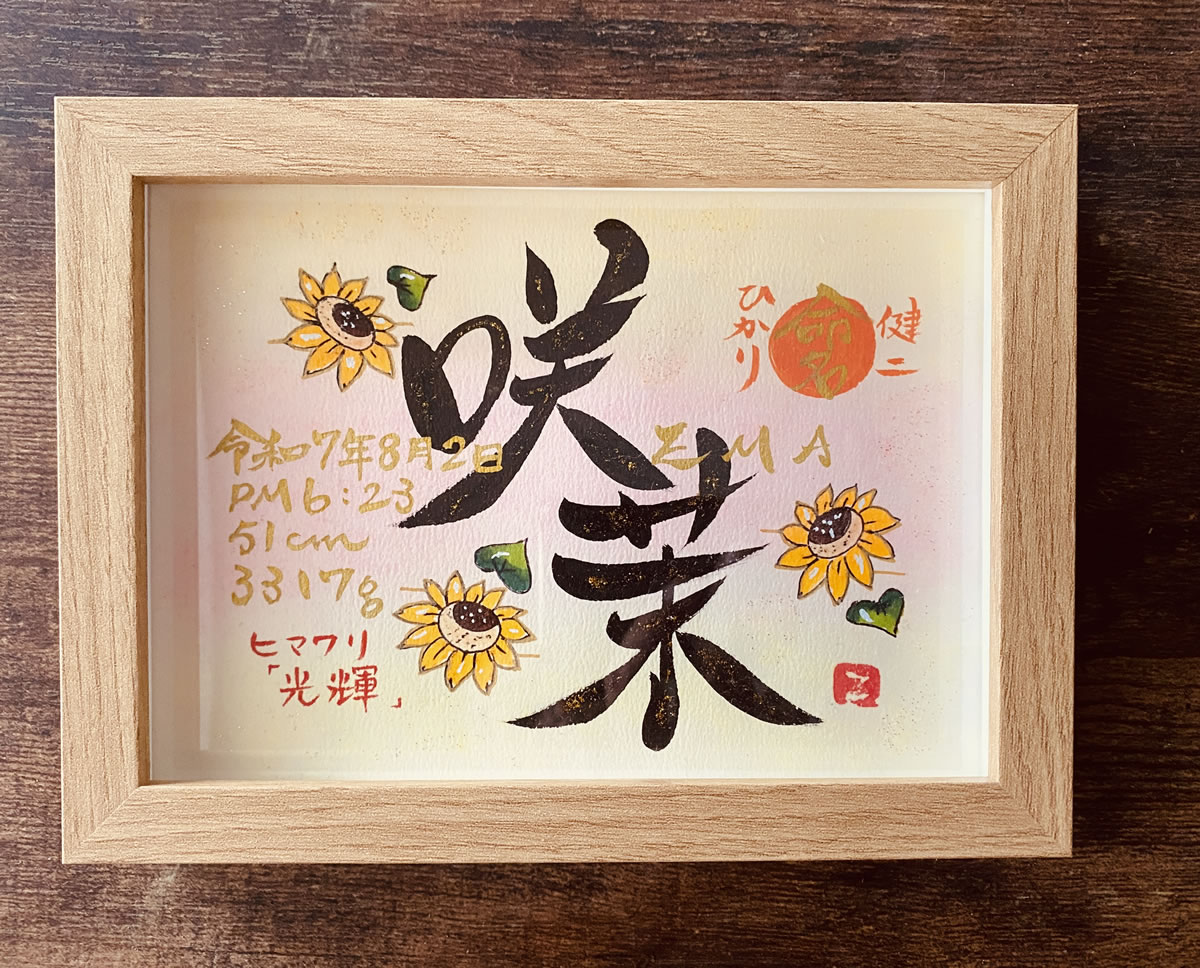 健二
命名
ひかり
咲茉
EMA
令和7年8月2日
PM6:23
51cm
3317g
ヒマワリ
「光輝」